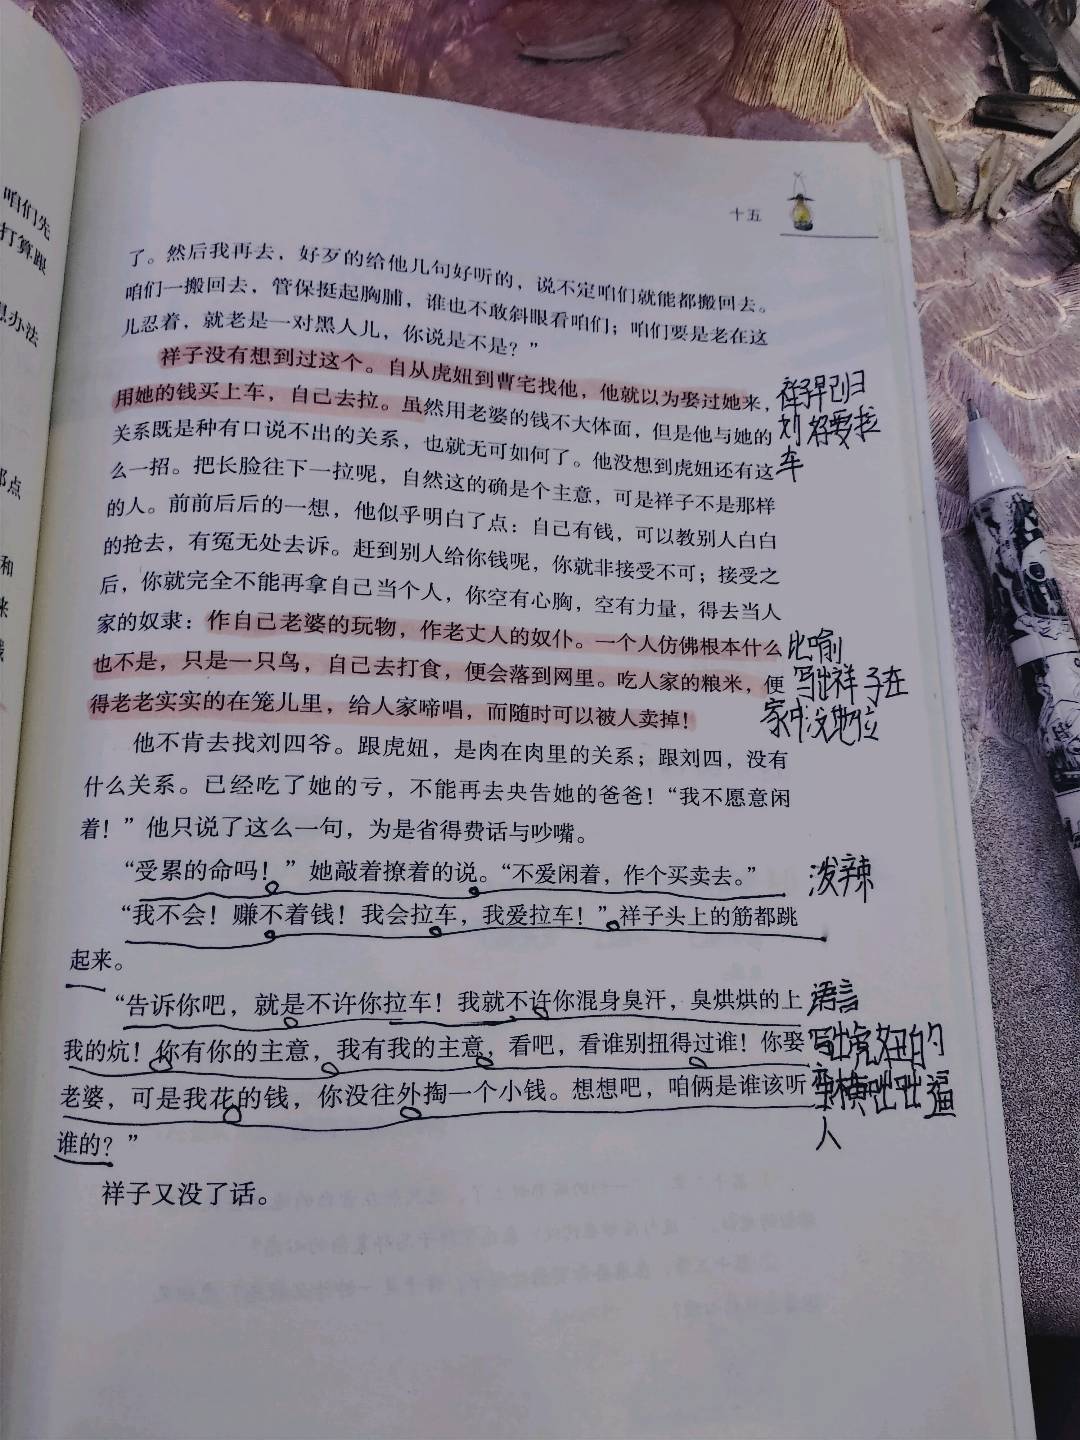 咱们先
打算跟
办法
那点
和
来
十五
了。然后我再去，好歹的给他几句好听的，说不定咱们就能都搬回去。
咱们一搬回去，管保挺起胸脯，谁也不敢斜眼看咱们；咱们要是老在这
儿忍着，就老是一对黑人儿，你说是不是？”
祥子没有想到过这个。自从虎妞到曹宅找他，他就以为娶过她来，
用她的钱买上车，自己去拉。虽然用老婆的钱不大体面，但是他与她的
关系既是种有口说不出的关系，也就无可如何了。他没想到虎妞还有这
么一招。把长脸往下一拉呢，自然这的确是个主意，可是祥子不是那样
的人。前前后后的一想，他似乎明白了点：自己有钱，可以教别人白白
的抢去，有冤无处去诉。赶到别人给你钱呢，你就非接受不可；接受之
后，你就完全不能再拿自己当个人，你空有心胸，空有力量，得去当人
家的奴隶：作自己老婆的玩物，作老丈人的奴仆。一个人仿佛根本什么
也不是，只是一只鸟，自己去打食，便会落到网里。吃人家的粮米，便
得老老实实的在笼儿里，给人家啼唱，而随时可以被人卖掉！
他不肯去找刘四爷。跟虎妞，是肉在肉里的关系；跟刘四，没有
什么关系。已经吃了她的亏，不能再去央告她的爸爸！“我不愿意闲
着！”他只说了这么一句，为是省得费话与吵嘴。
“受累的命吗！”她敲着撩着的说。“不爱闲着，作个买卖去。”
“我不会！赚不着钱！我会拉车，我爱拉车！”祥子头上的筋都跳
起来。
“告诉你吧，就是不许你拉车！我就不许你混身臭汗，臭烘烘的上
我的炕！你有你的主意，我有我的主意，看吧，看谁别扭得过谁！你娶
老婆，可是我花的钱，你没往外掏一个小钱。想想吧，咱俩是谁该听
谁的？”
祥子又没了话。
祥子早已归
划好要拉
车
比喻
写出祥子在
家中没地位
泼辣
语言
写出虎妞的
蛮横咄咄逼
人